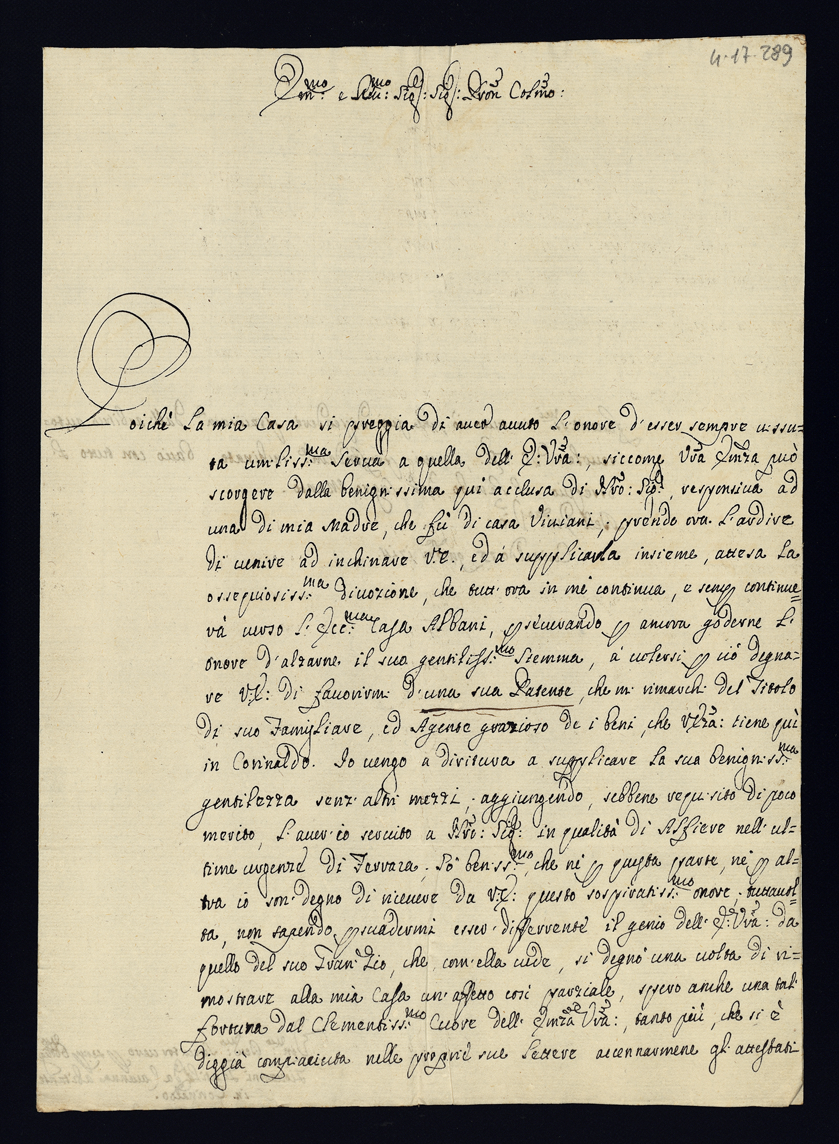 4-17-289
Em.mo e R.mo: Sig.r: Sig.r: Pron Col.mo:
Poichè la mia Casa si preggia di aver auuto l'onore d'esser sempre uissu=
ta umiliss:ma Serua a quella dell' E: Vra: siccome Vra Emza può
scorgere dalla benignissima quì acclusa di Nro: Sig.r, responsiua ad
una di mia Madre, che fù di casa Viuiani, prendo ora l'ardire
di uenire ad inchinare V.E., ed à supplicarla insieme, attesa la
ossequiosiss:ma diuozione, che tutt'ora in mè continua, e semp continue=
rà uerso l'Ecc:ma Casa Albani, pseuerando p ancora goderne l'
onore d'alzarne il suo gentiliss:mo Stemma, à uolersi p ciò degna=
re V.E: di fauorirmi d'una sua Patente, che mi rimarchi del Titolo
di suo Famigliare, ed Agente grazioso de i beni, che V.Emza: tiene quì
in Corinaldo. Io uengo a dirittura a supplicare la sua benigniss:ma
gentilezza senz'altri mezzi, aggiungendo, sebbene requisito di poco
merito, l'auer io seruito a Nro: Sig.r in qualità di Alfiere nell'ul=
time urgenze di Ferrara. Sò beniss:mo, che nè p questa parte, nè p al=
tra io son degno di riceuere da V.E: questo sospiratiss:mo onore, tuttauol=
ta, non sapendo psuadermi esser differente il genio dell' E: Vra: da
quello del suo Gran Zio, che, com'ella uede, si degnò una uolta di ri=
mostrare alla mia Casa un'affetto così parziale, spero anche una tal
fortuna dal Clementiss:mo Cuore dell' Emza Vra:, tanto più, che si è
diggià compiaciuta nelle proprie sue lettere accennarmene gli attestati